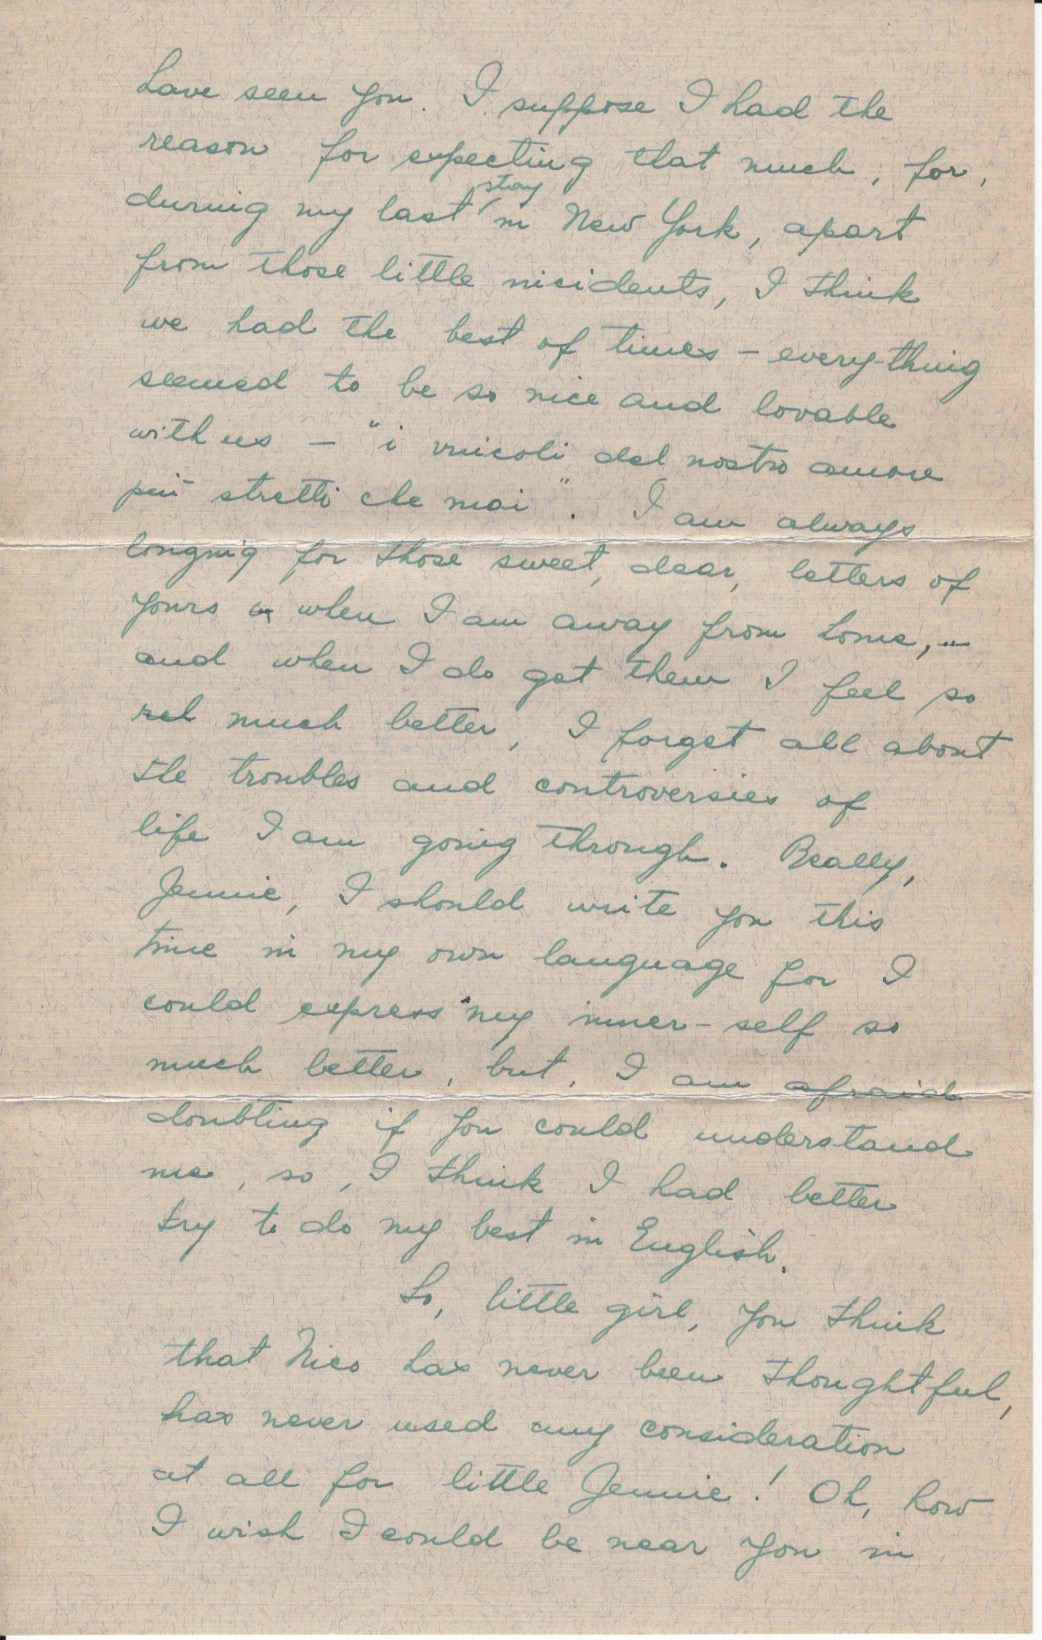 have seen you. I suppose I had the
reason for expecting that much, for,
during my last stay in New York, apart
from those little incidents, I think
we had the best of times – everything
seemed to be so nice and lovable
with us – "i vincoli del nostro amore
più stretti che mai". I am always
longing for those sweet, dear, letters of
yours when I am away from home, –
and when I do get them I feel so
much better, I forget all about
the troubles and controversies of
life I am going through. Really,
Jennie, I should write you this
time in my own language for I
could express my inner-self so
much better, but, I am afraid
doubting if you could understand
me, so, I think I had better
try to do my best in English.
So, little girl, you think
that Nico has never been thoughtful,
has never used any consideration
at all for little Jennie! Oh, how
I wish I could be near you in